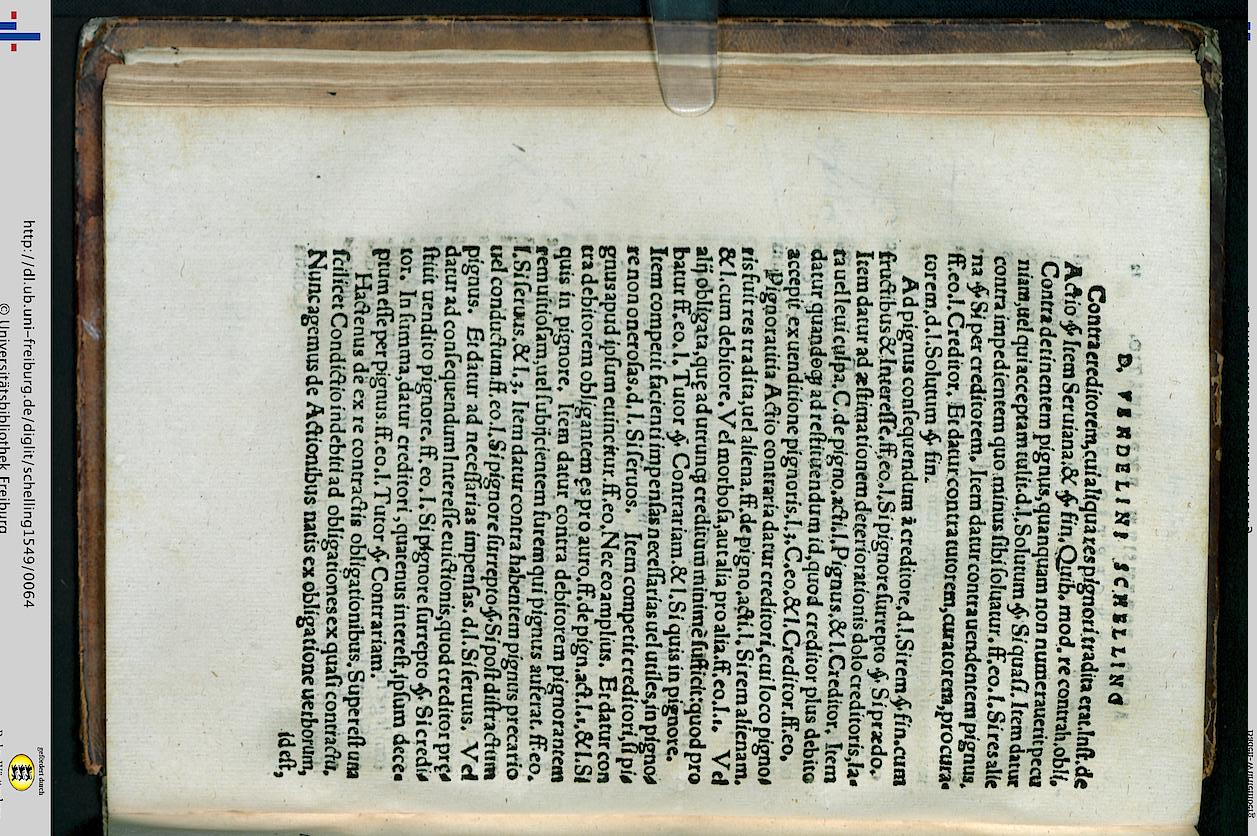 D. VENDELINI SCHELLING
Contra creditorem, cui aliqua res pignori tradita erat. Inst. de
Actio § Item Seruiana. & § fin. Quib. mod. re contrah. obli.
Contra detinentem pignus, quanquam non numerauerit pecu
niam, uel qui acceptam tulit. d. l. Solutum § Si quasi. Item datur
contra impedientem quo minus sibi soluatur. ff. eo. l. Si res alie
na § Si per creditorem. Item datur contra uendentem pignus.
ff. eo. l. Creditor. Et datur contra tutorem, curatorem, procura-
torem. d. l. Solutum § fin.
Ad pignus consequendum à creditore. d. l. Si rem § fin. cum
fructibus & Interesse. ff. eo. l. Si pignore surrepto § Si prædo.
Item datur ad æstimationem deteriorationis dolo creditoris, la-
ta uel leui culpa. C. de pigno. acti. l. Pignus. & l. Creditor. Item
datur quandoq; ad restituendum id, quod creditor plus debito
accepit ex uenditione pignoris. l. 3. C. eo. & l. Creditor. ff. eo.
Pignoratitia Actio contraria datur creditori, cui loco pigno-
ris fuit res tradita, uel aliena. ff. de pigno. acti. l. Si rem alienam.
& l. cum debitore. Vel morbosa, aut alia pro alia. ff. eo. l. 1. Vel
alij obligata, quę ad utrunq; creditum minimè sufficit, quod pro
batur. ff. eo. l. Tutor § Contrariam. & l. Si quis in pignore.
Item competit facienti impensas necessarias uel utiles, in pigno-
re non onerosas. d. l. Si seruos. Item competit creditori, si pi-
gnus apud ipsum euincitur. ff. eo. Nec eo amplius. Et datur con
tra debitorem obligantem ęs pro auro. ff. de pign. act. l. 1. & l. Si
quis in pignore. Item datur contra debitorem pignorantem
rem uitiosam, uel subijcientem furem qui pignus auferat. ff. eo.
l. Si seruus. & l. 3. Item datur contra habentem pignus precario
uel conductum. ff. eo. l. Si pignore surrepto § Si post distractum
pignus. Et datur ad necessarias impensas. d. l. Si seruus. Vel
datur ad consequendum Interesse euictionis, quod creditor prę-
stitit uendito pignore. ff. eo. l. Si pignore surrepto § Si credi-
tor. In summa, datur creditori, quatenus interest, ipsum dece-
ptum esse per pignus. ff. eo. l. Tutor § Contrariam.
Hactenus de ex re contractis obligationibus. Superest una
scilicet Condictio indebiti ad obligationes ex quasi contractu.
Nunc agemus de Actionibus natis ex obligatione uerborum,
id est,
http://dl.ub.uni-freiburg.de/diglit/schelling1549/0064
© Universitätsbibliothek Freiburg
gefördert durch